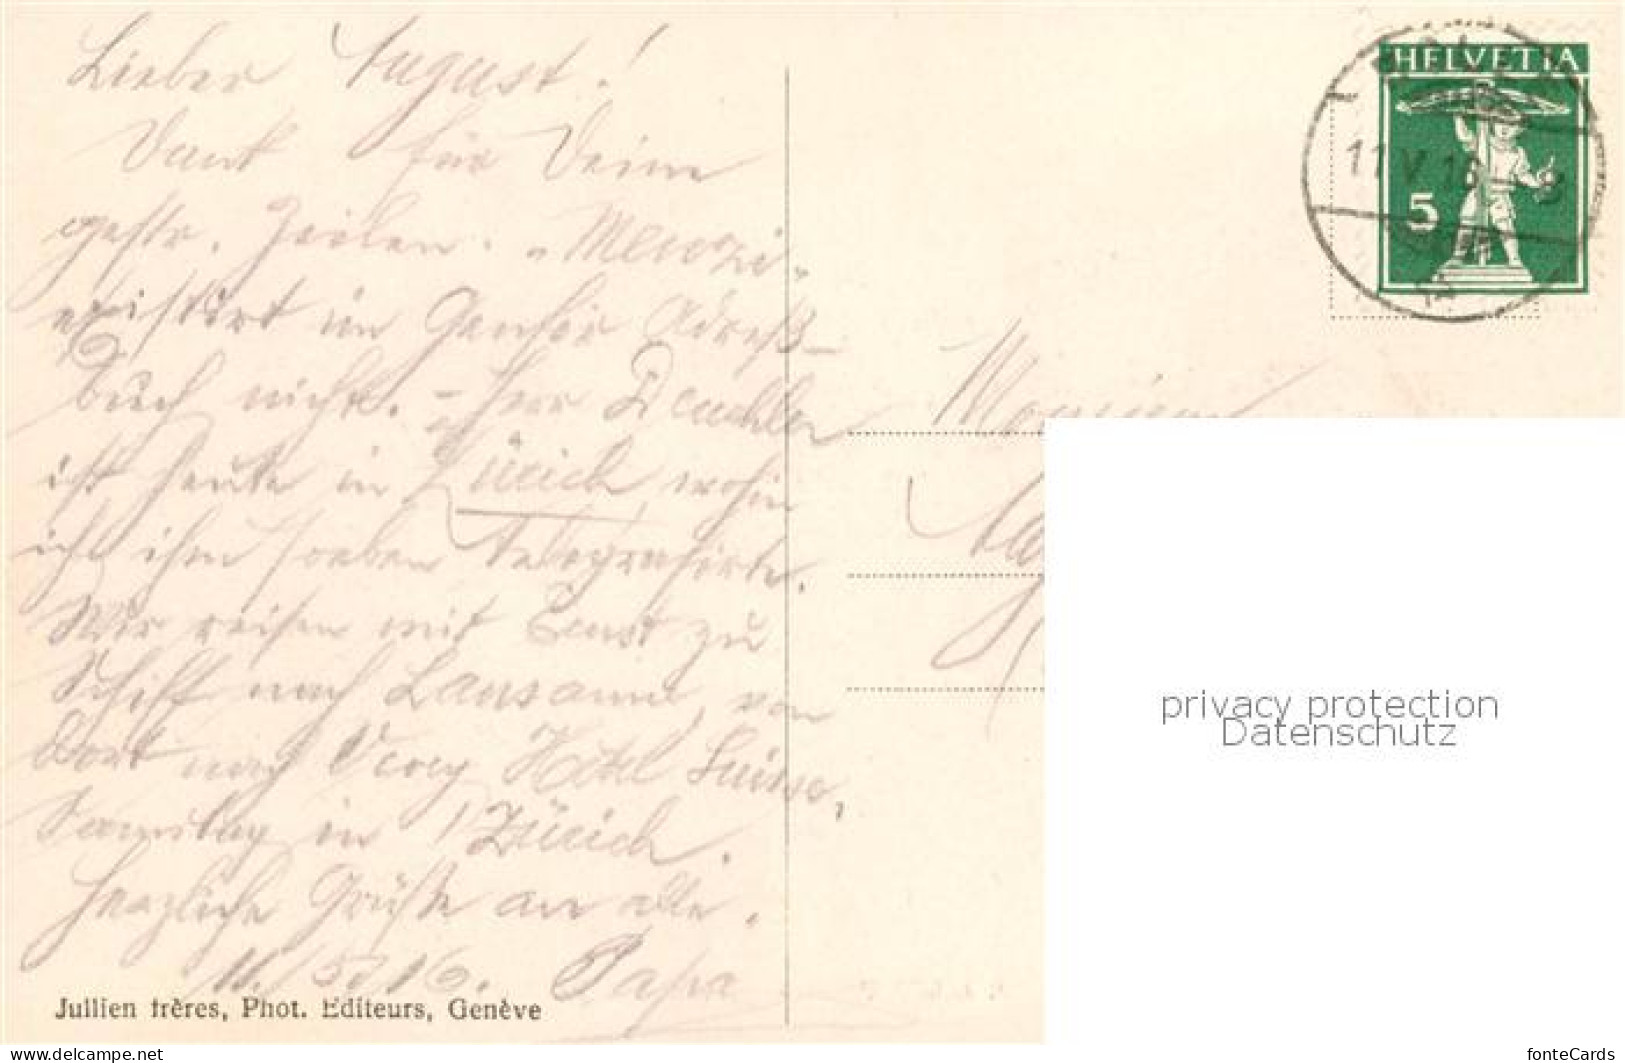 Lieber August!
Dank für Deine
gestr. Zeilen. „Merozi"
existirt im Genfer Adreß-
buch nicht. – Herr
ist heute in Zürich wohin
ich ihm soeben telegrafirte.
Wir reisen mit Ernst zu
Schiff nach Lausanne, von
dort nach Vevey Hotel Suisse,
Samstag in Zürich.
Herzliche Grüße an alle.
11./5.16. Papa
Jullien frères, Phot. Editeurs, Genève
HELVETIA
5
11.V.16
Monsieur
privacy protection
Datenschutz
www.delcampe.net
fonteCards